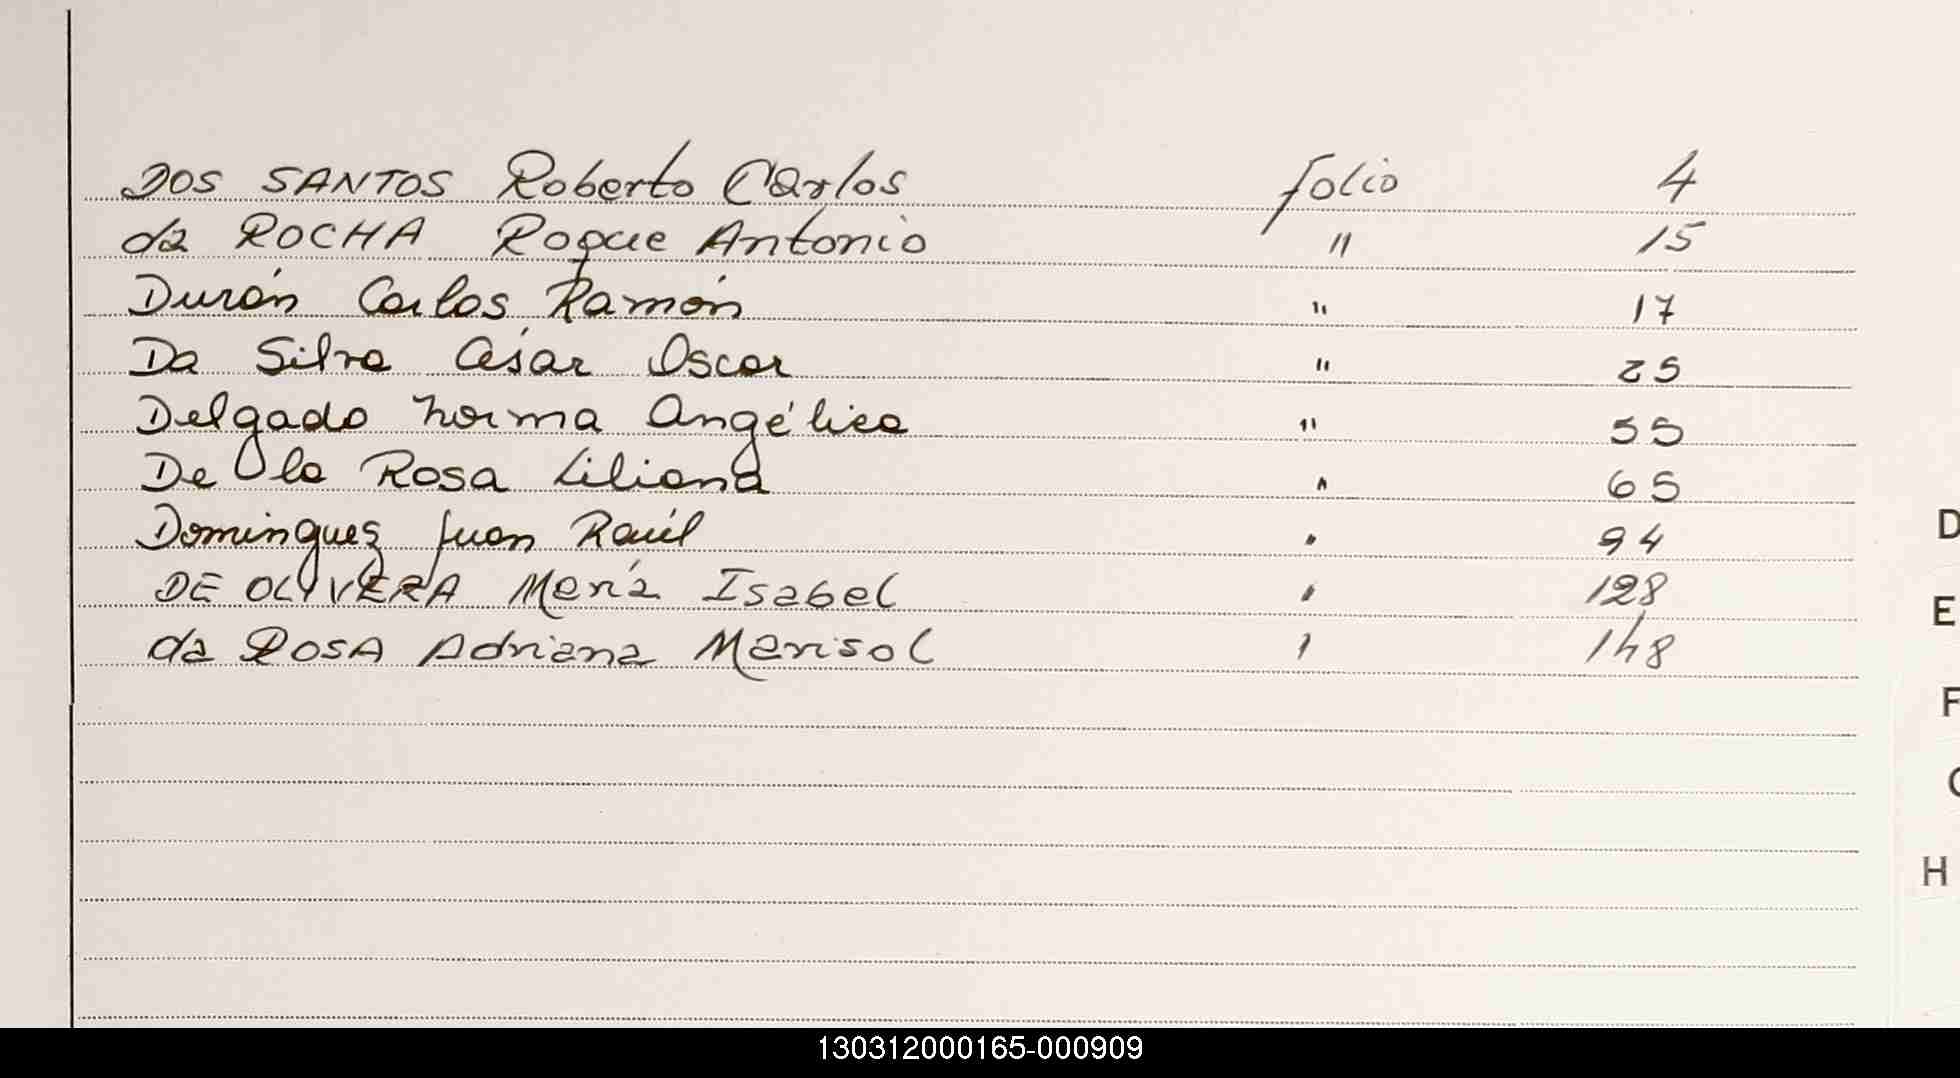 DOS SANTOS Roberto Carlos folio 4
da ROCHA Roque Antonio " 15
Durán Carlos Ramón " 17
Da Silva César Oscar " 25
Delgado Norma Angélica " 55
De la Rosa Liliana " 65
Domínguez Juan Raúl " 94
DE OLIVERA María Isabel " 128
da ROSA Adriana Marisol " 148
D
E
F
H
130312000165-000909